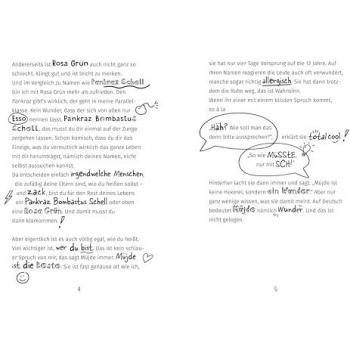 Andererseits ist Rosa Grün auch nicht ganz so
schlecht. Klingt gut und ist leicht zu merken.
Und im Vergleich zu Namen wie Pankraz Schell
bin ich mit Rosa Grün mehr als zufrieden. Den
Pankraz gibt's wirklich, der geht in meine Parallel-
klasse. Kein Wunder, dass der sich von allen nur
Esso nennen lässt. Pankraz Bombastus
Schell, das musst du dir einmal auf der Zunge
zergehen lassen. Schon komisch, dass du dir das
Einzige, was du vermutlich wirklich das ganze Leben
mit dir herumträgst, nämlich deinen Namen, nicht
selbst aussuchen kannst.
Da entscheiden einfach irgendwelche Menschen,
die zufällig deine Eltern sind, wie du heißen sollst –
und zack, bist du für den Rest deines Lebens
ein Pankraz Bombastus Schell oder eben
eine Rosa Grün. Und damit musst du
dann klarkommen!
Aber eigentlich ist es auch völlig egal, wie du heißt.
Viel wichtiger ist, wer du bist. Das ist kein schlau-
er Spruch von mir, das sagt Müjde immer. Müjde
ist die Beste. Sie ist fast genauso alt wie ich,
4
sie hat nur vier Tage Vorsprung auf die 12 Jahre. Auf
ihren Namen reagieren die Leute auch oft verwundert,
manche sogar richtig allergisch. Sie hat dann trotz-
dem die Ruhe weg, das ist Wahnsinn.
Wenn ihr einer mit einem blöden Spruch kommt,
so à la
„Häh? Wie soll man das
denn bitte aussprechen?", erklärt sie total cool:
„So wie MÜSSTE,
nur mit SCH!"
Hinterher lacht sie dann immer und sagt: „Müjde ist
keine Hexerei, sondern ein Wunder." Aber nur
ganz wenige wissen, was sie damit meint. Auf Deutsch
bedeutet Müjde nämlich Wunder. Und das ist
nicht gelogen.
5